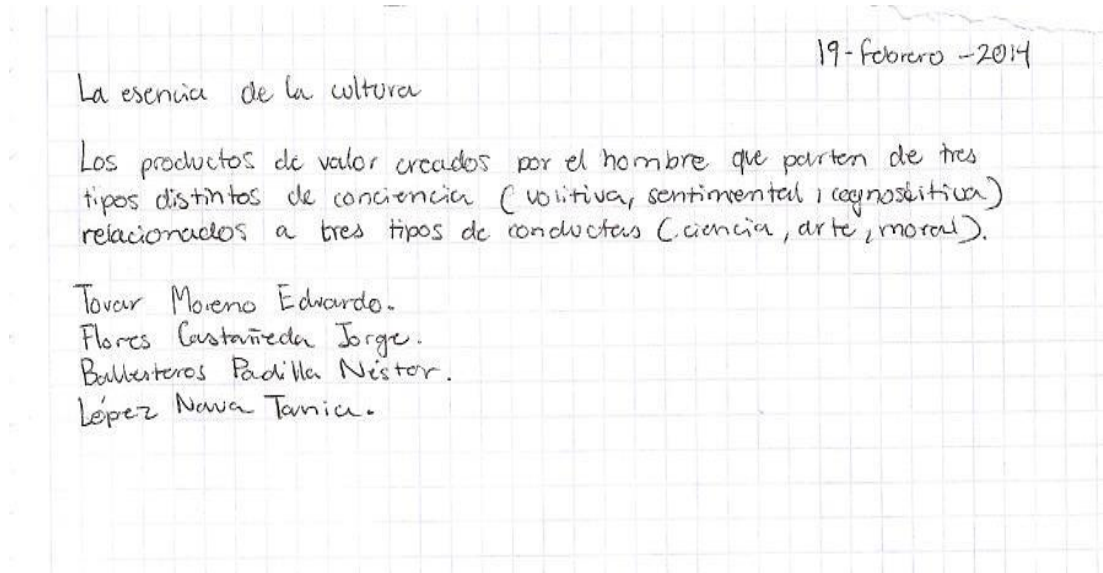 19-febrero-2014
La esencia de la cultura
Los productos de valor creados por el hombre que parten de tres
tipos distintos de conciencia (volitiva, sentimental, cognoscitiva)
relacionados a tres tipos de conductas (ciencia, arte, moral).
Tovar Moreno Eduardo.
Flores Castañeda Jorge.
Ballesteros Padilla Néstor.
López Nava Tania.